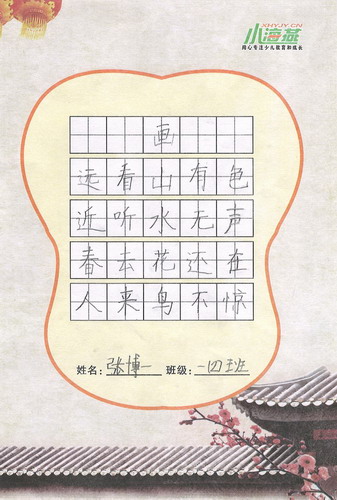 XHYJY.CN
小海燕
用心专注少儿教育和成长
画
远看山有色
近听水无声
春去花还在
人来鸟不惊
姓名：张博一 班级：一四班